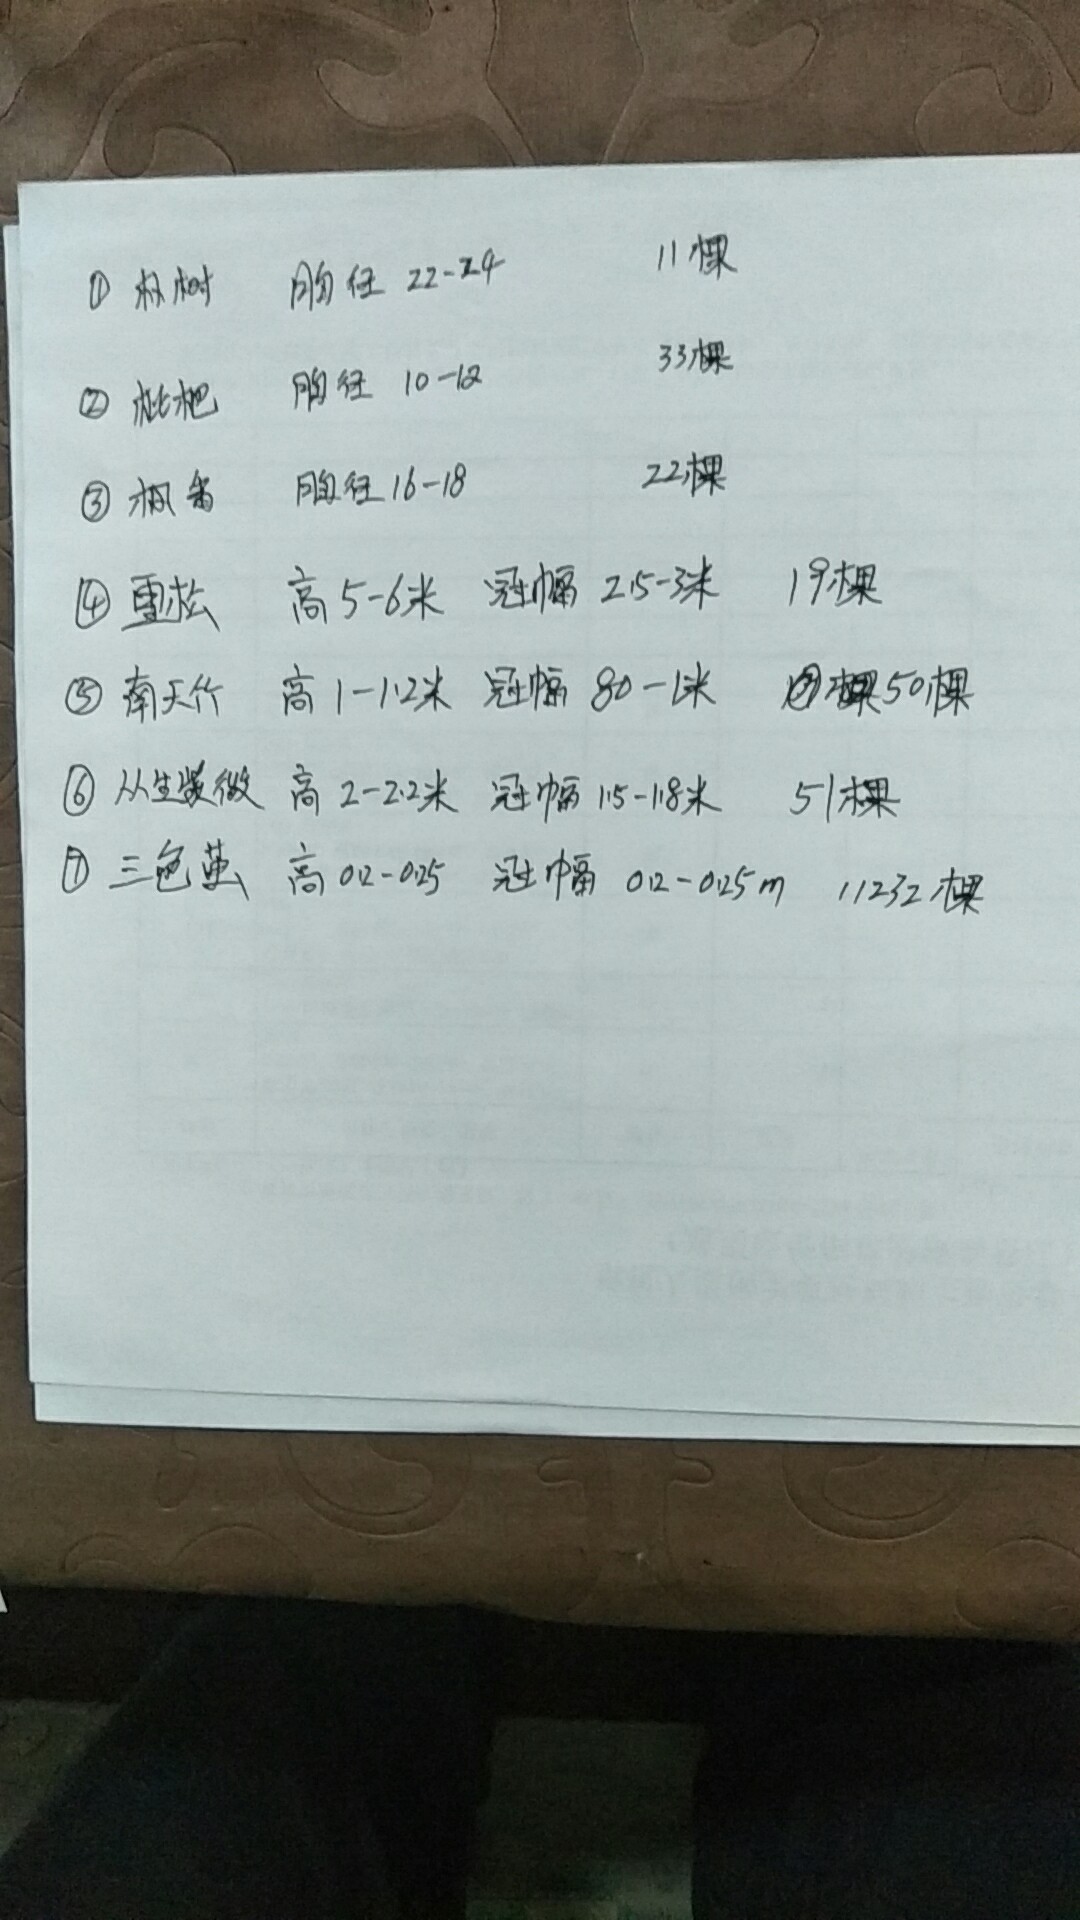 ① 朴树 胸径 22-24 11棵
② 枇杷 胸径 10-12 33棵
③ 枫香 胸径 16-18 22棵
④ 雪松 高 5-6米 冠幅 2.5-3米 19棵
⑤ 南天竹 高 1-1.2米 冠幅 80-1米 50棵
⑥ 从生紫微 高 2-2.2米 冠幅 1.5-1.8米 51棵
⑦ 三色堇 高 0.2-0.25 冠幅 0.2-0.25m 11232棵